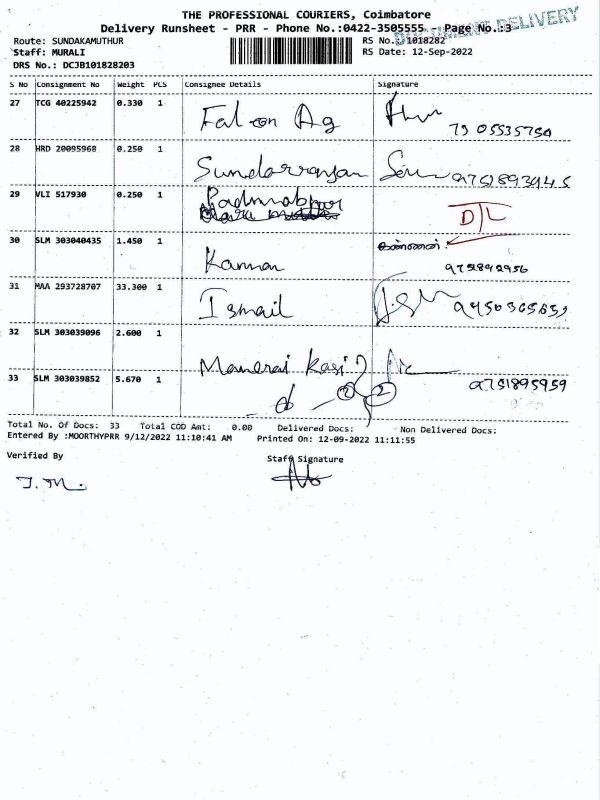 THE PROFESSIONAL COURIERS, Coimbatore
Delivery Runsheet - PRR - Phone No.:0422-3505555 - Page No.:3
DOCUMENT DELIVERY
Route: SUNDAKAMUTHUR RS No.: 1018282
Staff: MURALI RS Date: 12-Sep-2022
DRS No.: DCJB101828203
S No Consignment No Weight PCS Consignee Details Signature
27 TCG 40225942 0.330 1
Falcon Ag
79 05535750
28 HRD 20095968 0.250 1
Sundarranjan 9751893945
29 VLI 517930 0.250 1
D/L
30 SLM 303040435 1.450 1 கண்ணன்
Kannan 9751892956
31 MAA 293728707 33.300 1
Ismail
32 SLM 303039096 2.600 1
33 SLM 303039852 5.670 1 9751895959
2 2
Total No. Of Docs: 33 Total COD Amt: 0.00 Delivered Docs: Non Delivered Docs:
Entered By :MOORTHYPRR 9/12/2022 11:10:41 AM Printed On: 12-09-2022 11:11:55
Verified By Staff Signature
J. M.